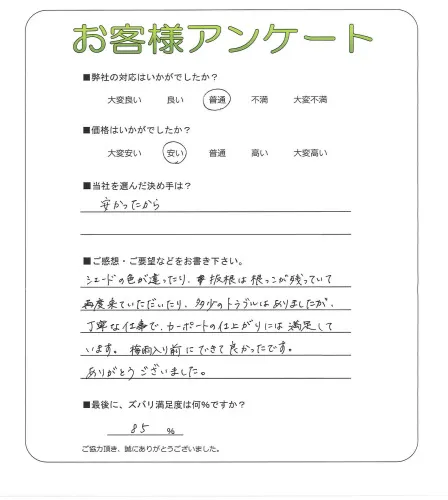 お客様アンケート
■弊社の対応はいかがでしたか?
大変良い 良い 普通 不満 大変不満
■価格はいかがでしたか?
大変安い 安い 普通 高い 大変高い
■当社を選んだ決め手は?
安かったから
■ご感想・ご要望などをお書き下さい。
シェードの色が違ったり、坂根は根っこが残っていて
再度来ていただいたり、多少のトラブルはありましたが、
丁寧な仕事で、カーポートの仕上がりには満足して
います。梅雨入り前にできて良かったです。
ありがとうございました。
■最後に、ズバリ満足度は何%ですか?
85 %
ご協力頂き、誠にありがとうございました。